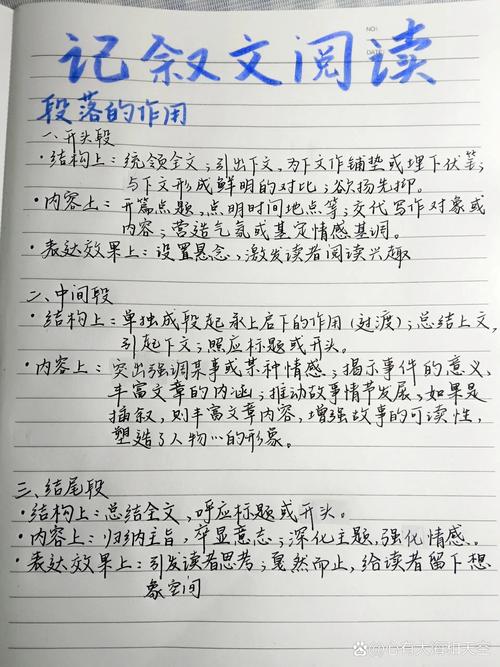 NO:
DATE:
记叙文阅读
段落的作用
一、开头段
·结构上：统领全文；引出下文，为下文作铺垫或埋下伏笔；
与下文形成鲜明的对比；欲扬先抑。
·内容上：开篇点题，点明时间地点等；交代写作对象或
内容；营造气氛或基定情感基调。
·表达效果上：设置悬念，激发读者阅读兴趣
二、中间段
·结构上：单独成段起承上启下的作用（过渡）；总结上文，
引起下文；照应标题或开头。
·内容上：突出强调某事或某种情感；揭示事件的意义、
丰富文章的内涵；推动故事情节发展，如果是
插叙，则丰富文章内容，增强故事的可读性，
塑造了人物……的形象。
三、结尾段
·结构上：总结全文，呼应标题或开头。
·内容上：归纳主旨，卒显意志；深化主题，强化情感。
·表达效果上：引发读者思考；戛然而止，给读者留下想
象空间